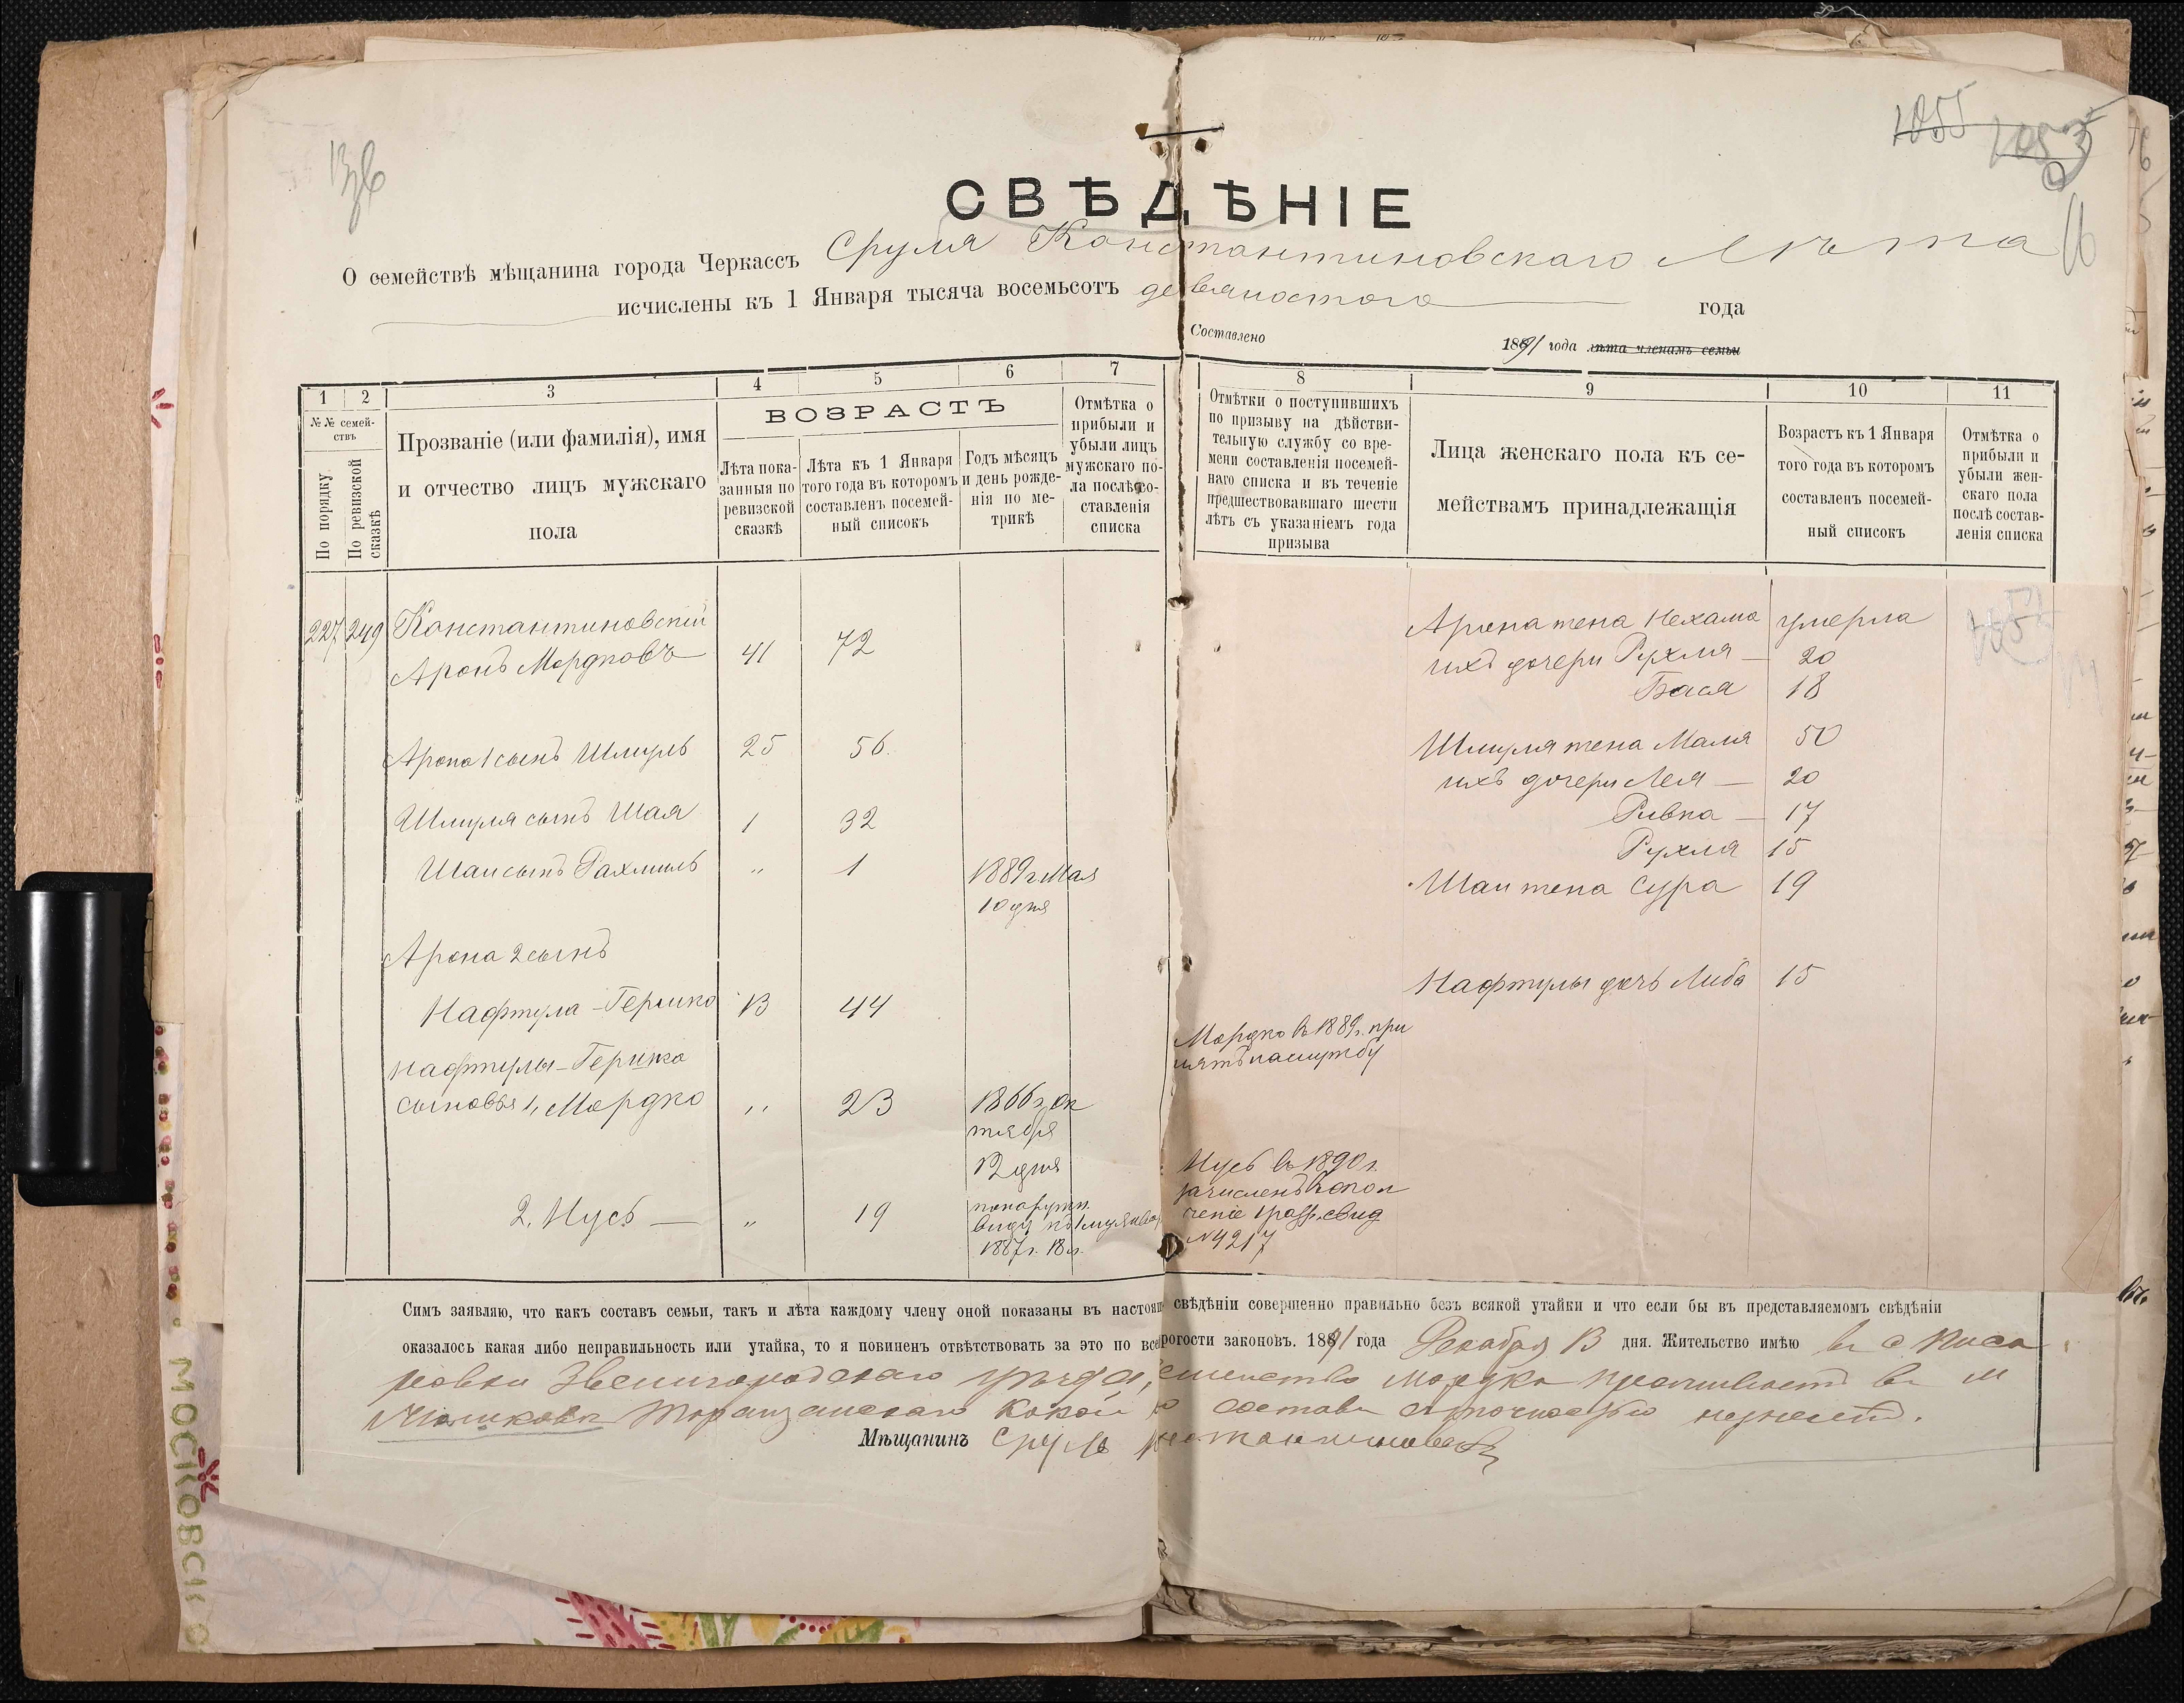 136
1055
16
СВѢДѢНІЕ
О семействѣ мѣщанина города Черкассъ Сруля Константиновскаго Лѣта
исчислены къ 1 Января тысяча восемьсотъ девяностого года
Составлено 1891 года лѣта членамъ семьи
1 2 3 4 5 6 7 8 9 10 11
№№ семей-
ствъ
По порядку
По ревизской
сказкѣ
Прозваніе (или фамилія), имя
и отчество лицъ мужскаго
пола
ВОЗРАСТЪ
Лѣта пока-
занныя по
ревизской
сказкѣ
Лѣта къ 1 Января
того года въ которомъ
составленъ посемей-
ный списокъ
Годъ мѣсяцъ
и день рожде-
нія по ме-
трикѣ
Отмѣтка о
прибыли и
убыли лицъ
мужскаго по-
ла послѣ со-
ставленія
списка
Отмѣтки о поступившихъ
по призыву на дѣйстви-
тельную службу со вре-
мени составленія посемей-
наго списка и въ теченіе
предшествовавшаго шести
лѣтъ съ указаніемъ года
призыва
Лица женскаго пола къ се-
мействамъ принадлежащія
Возрастъ къ 1 Января
того года въ которомъ
составленъ посемей-
ный списокъ
Отмѣтка о
прибыли и
убыли жен-
скаго пола
послѣ состав-
ленія списка
227 249 Константиновскій
Аронъ Мордковъ 41 72
Арона 1 сынъ Шмуль 25 56
Шмуля сынъ Шая 1 32
Шаи сынъ Рахмиль " 1 1889 г. Мая
10 дня
Арона 2 сынъ
Нафтула-Гершко 13 44
Нафтулы-Гершка
сыновья 1, Мордко " 23 1866 г. Ок
тября
12 дня
2, Нусь — " 19 по наружн.
виду къ 1 му Января
1887 г. 18 л.
Мордко въ 1889 г. при
нятъ на службу
Нусь въ 1890 г.
зачисленъ въ опол
ченіе 1 разр. свид
№ 4217
Арона жена Нехама умерла
ихъ дочери Рухля — 20
Бася 18
Шмуля жена Маля 50
ихъ дочери Лея — 20
Ривка — 17
Рухля 15
Шаи жена Сура 19
Нафтулы дочь Либа 15
Симъ заявляю, что какъ составъ семьи, такъ и лѣта каждому члену оной показаны въ настоящ свѣдѣніи совершенно правильно безъ всякой утайки и что если бы въ представляемомъ свѣдѣніи
оказалось какая либо неправильность или утайка, то я повиненъ отвѣтствовать за это по всей рогости законовъ. 1891 года Декабря 13 дня. Жительство имѣю въ с
Звенигородскаго уѣзда, семейство Мордка проживаетъ въ м
состава
Мѣщанинъ Сруль Константиновскій
МОСКОВСК